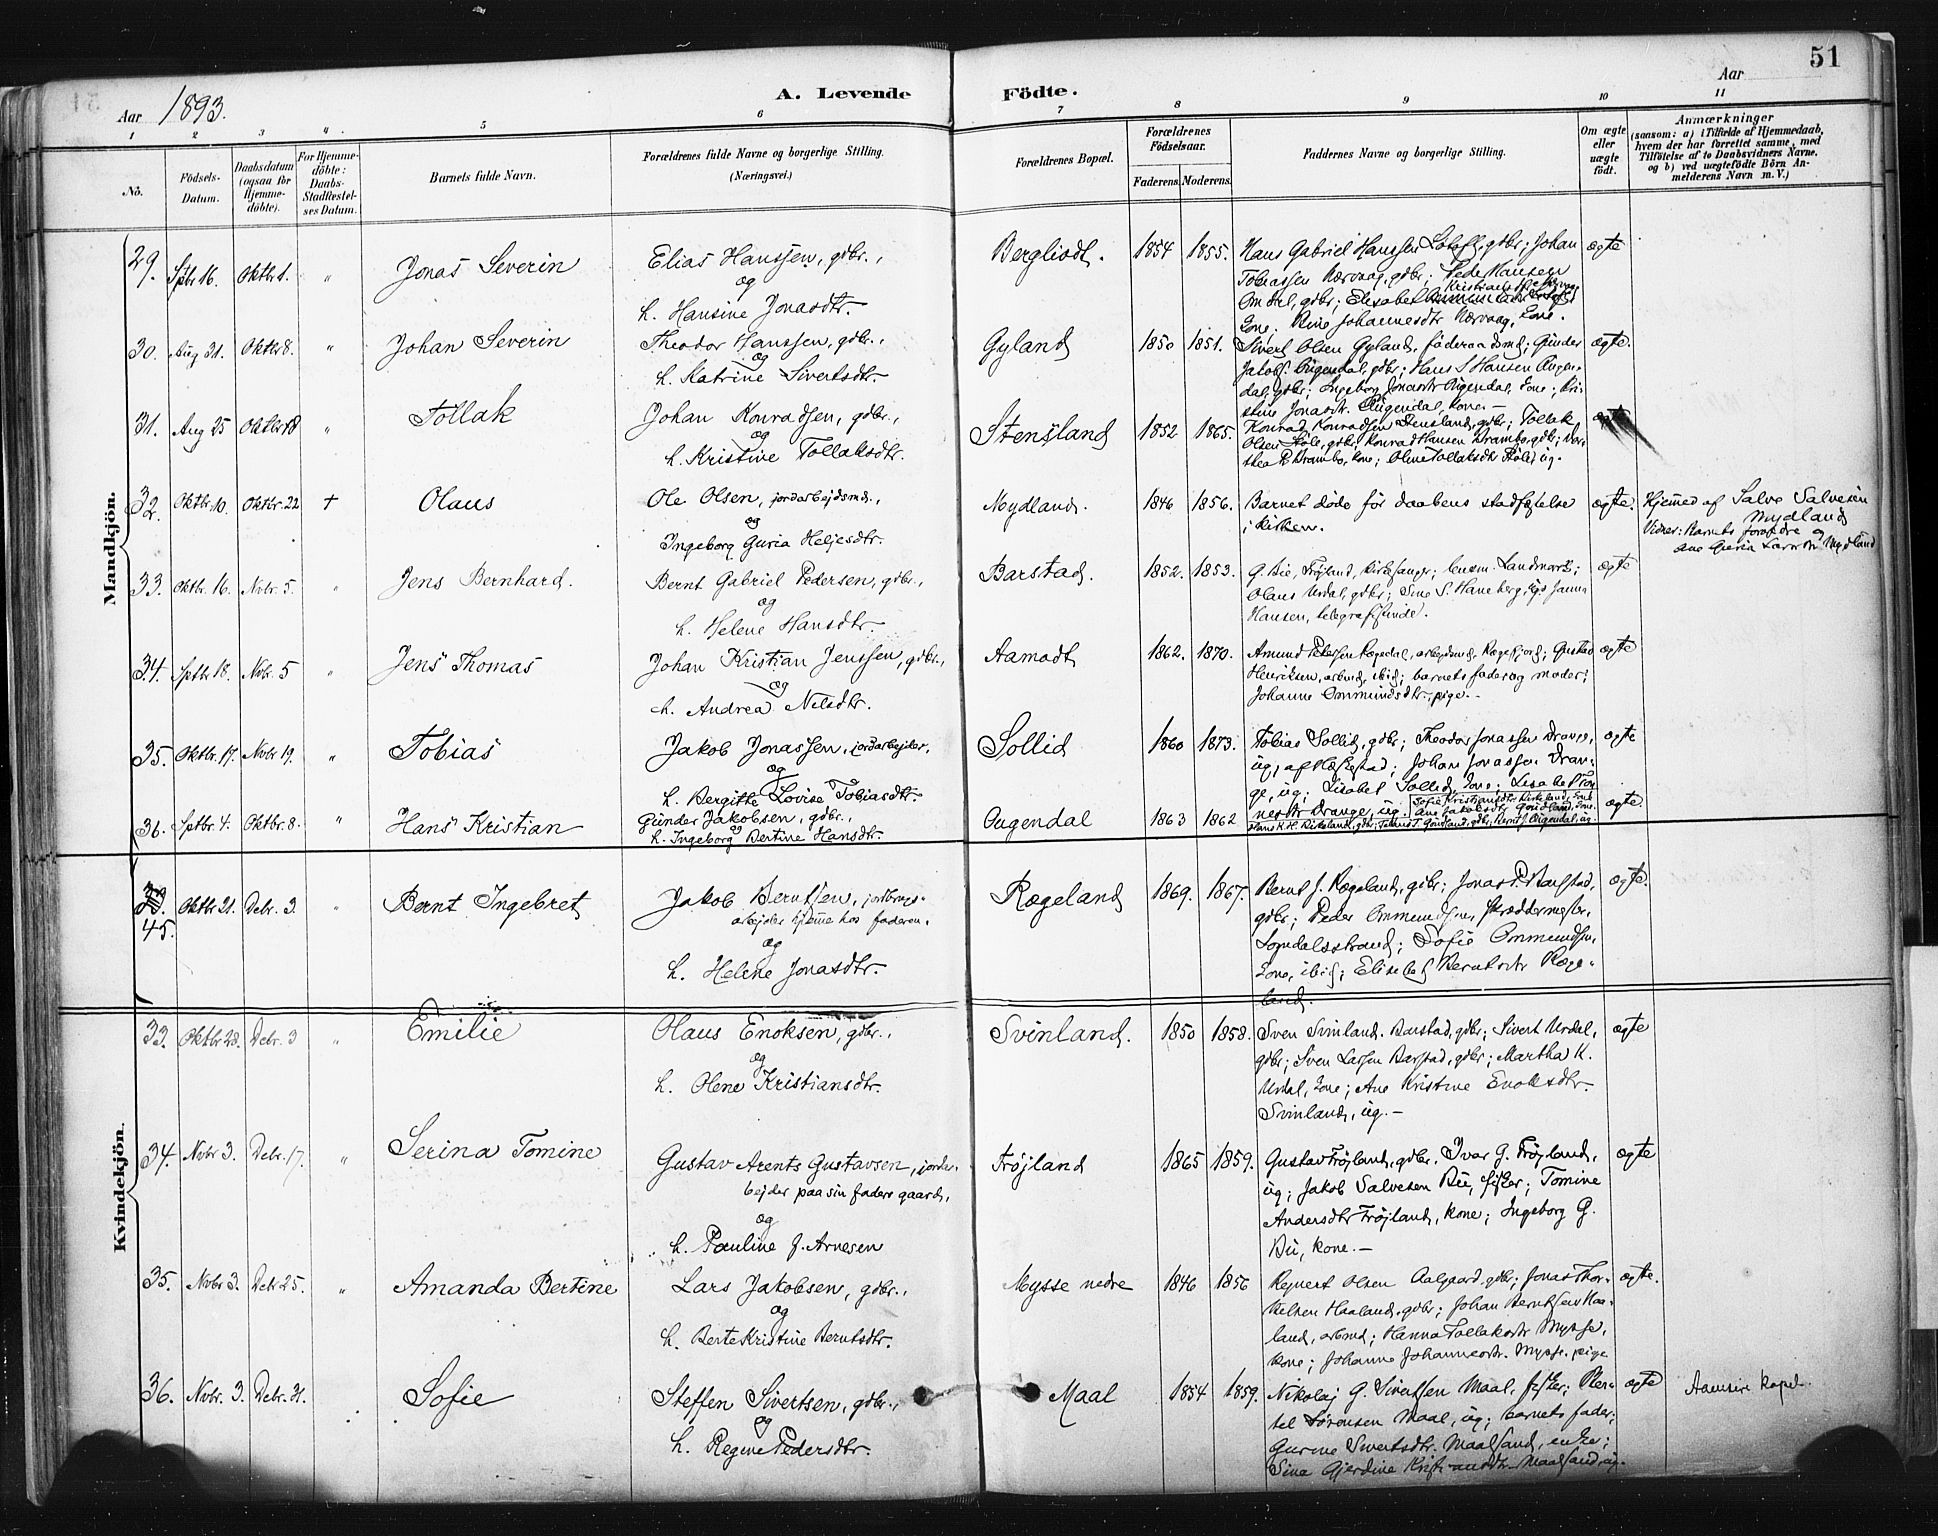 51
Aar 1893.
A. Levende Födte.
Aar
1 2 3 4 5 6 7 8 9 10 11
No.
Födsels-Datum.
Daabsdatum (ogsaa for Hjemme-döbte).
For Hjemme-döbte: Daabs-Stadfestel-ses Datum.
Barnets fulde Navn.
Forældrenes fulde Navne og borgerlige Stilling. (Næringsvei.)
Forældrenes Bopæl.
Forældrenes Födselsaar.
Faderens. Moderens.
Faddernes Navne og borgerlige Stilling.
Om ægte eller uægte födt.
Anmærkninger
(saasom: a) i Tilfælde af Hjemmedaab,
hvem der har forrettet samme, med
Tilföielse af to Daabsvidners Navne,
og b) ved uægtefödte Börn An-
melderens Navn m. V.)
Mandkjön.
29. Sptbr 16. Oktbr 1. " Jonas Severin
Elias Hanssen, gdbr.,
og
h. Hansine Jonasdtr.
Bergliodt. 1854 1855.
Hans Gabriel Hanssen gdbr; Johan
Tobiassen Nærvaag, gdbr; Peder Hansen
Omdal, gdbr; Elisabet
kone. Rine Johannesdtr Nærvaag, kone.
ægte
30. Aug 31. Oktbr 8. " Johan Severin
Theodor Hanssen, gdbr.,
og
h. Katrine Sivertsdtr.
Gyland 1850 1851.
Sivert Olsen Gyland, föderaadsmd; Günder
Jakobs. Ougendal, gdbr; Hans S Hansen Ougen-
dal, gdbr; Ingeborg Jonasdtr Ougendal, kone; Kri-
stine Jonasdtr. Ougendal, kone. —
ægte.
31. Aug 25 Oktbr 8 " Tollak
Johan Konradsen, gdbr.,
og
h. Kristine Tollaksdtr.
Stensland 1852 1865.
Konrad Konradsen Stensland, gdbr; Tollak
Olsen Stöle, gdbr; Konrad Hansen Drambo, gdbr; Dor-
thea R. Drambo, kone; Oline Tollaksdtr Stöle, ug.
ægte
32. Oktbr. 10. Oktbr. 22 † Olaus
Ole Olsen, jordarbejdsmd.,
og
Ingeborg Guria Heljesdtr.
Mydland. 1846 1856.
Barnet döde för daabens stadfæstelse
i kirken.
ægte.
Hjemmed af Salve Salvesen
Mydland
Vidner: Barnets forældre og
Ane Guria Larsdtr. Mydland
33. Oktbr. 16. Novbr. 5. " Jens Bernhard.
Bernt Gabriel Pedersen, gdbr.,
og
h. Helene Hansdtr.
Barstad. 1852. 1853.
G. Bie, Fröjland, kirkesanger; Landmark;
Olaus Urdal, gdbr; Sine S. Haneberg, ug; Janna
Hansen, telegrafistinde.
ægte
34. Sptbr 18. Novbr. 5 " Jens Thomas
Johan Kristian Jenssen, gdbr.,
og
h. Andrea Nilsdtr.
Aamodt 1862. 1870.
Amund Petersen Rægedal, arbejdsmd. Rægefjord; Gustav
Henriksen, arbmd, ibid; barnets fader og moder;
Johanne Ommundsdtr, pige. -
ægte
35. Oktbr. 17. Novbr 19. " Tobias
Jakob Jonassen, jordarbejder,
og
h. Bergitte Lovise Tobiasdtr.
Sollid 1860 1873.
Tobias Sollid, gdbr; Theodor Jonassen Drange,
ug, af Hæskestad; Johan Jonassen Dran-
ge, ug; Lisabet Sollid, kone; Lisabet Jo-
nesdtr Drange, ug.
ægte
36. Sptbr. 4. Oktbr. 8. " Hans Kristian
Günder Jakobsen, gdbr.,
og
h. Ingeborg Bertine Hansdtr.
Ougendal 1863 1862
Sofie Kristiansdtr Birkeland, kone
Ane Jakobsdtr Goudland, kone.
Hans K. H. Birkeland, gdbr; T. Goudland, gdbr; Bernt J. Ougendal, ug
ægte.
45. Oktbr. 21. Debr. 3. " Bernt Ingebret
Jakob Berntsen, jordbrugs-
arbejder hjemme hos faderen.
og
h. Helene Jonasdtr.
Rægeland 1869. 1867.
Bernt J. Rægeland, gdbr; Jonas P. Barstad,
gdbr; Peder Ommundsen, skræddermester,
Sogndalsstrand; Sofie Ommundsen,
kone, ibid; Elisabet Berntsdtr Ræge-
land.
ægte.
Kvindekjön.
33. Oktbr 28. Debr. 3 " Emilie
Olaus Enoksen, gdbr.,
og
h. Olene Kristiansdtr.
Svinland. 1850 1858.
Sven Svinland. Barstad, gdbr; Sivert Urdal,
gdbr; Sven Larsen Barstad, gdbr; Martha K.
Urdal, kone; Ane Kristine Enoksdtr.
Svinland, ug. —
ægte
34. Novbr 3. Debr. 17. " Serina Tomine
Gustav Arents Gustavsen, jordar-
bejder paa sin faders gaard,
og
h. Pauline J. Arnesen
Fröjland 1865 1859.
Gustav Fröjland, gdbr. Ivar G. Fröjland,
ug; Jakob Salvesen Bu, fisker; Tomine
Andersdtr Fröjland, kone; Ingeborg G.
Bu, kone. —
ægte
35. Novbr 3. Debr 25. " Amanda Bertine
Lars Jakobsen, gdbr.,
og
h. Berte Kristine Berntsdtr.
Mysse nedre 1846 1856
Rejnert Olsen Aalgaard, gdbr; Jonas Thor-
kelsen Haaland, gdbr; Johan Berntsen Haa-
land, arbmd; Hanna Tollaksdtr Mysse,
kone; Johanne Johannesdtr. Mysse. pige
ægte.
36. Novbr. 3. Debr. 31. Sofie
Steffen Sivertsen, gdbr.,
og
h. Regine Pedersdtr.
Maal 1854 1859.
Nikolaj G. Sivertsen Maal, fisker; Ber-
tel Sörensen Maal, ug; barnets fader;
Gurine Sivertsdtr. Maalsand, enke;
Sina Gjerdine Kristiansdtr. Maalsand, ug.
ægte
Aamsire kapel